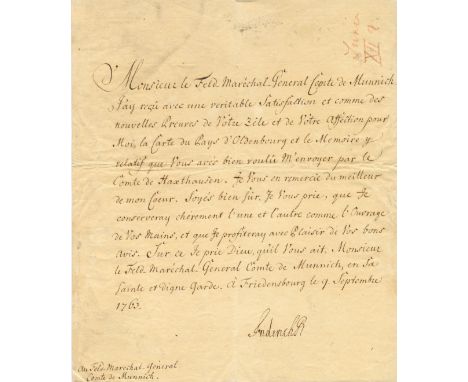 XII 9.
Monsieur le Feld Maréchal-General Comte de Munnich.
J'ay reçu avec une veritable Satisfaction et comme des
nouvelles Preuves de Vôtre Zéle et de Votre Afféction pour
Moi, la Carte du Pays d'Oldenbourg et le Memoire y
relatif que Vous avés bien voulu M'envoyer par le
Comte de Haxthausen. Je Vous en remercie du meilleur
de mon Coeur. Soyés bien Sur, Je Vous prie, que Je
conserveray chérement l'une et l'autre comme l'Ouvrage
de Vos Mains, et que Je profiteray avec Plaisir de Vos bons
Avis. Sur ce Je prie Dieu, qu'il Vous ait, Monsieur
le Feld Maréchal-General Comte de Munnich, en Sa
Sainte et digne Garde. À Friedensbourg le 9 Septembre
1763.
Au Feld Marechal-General
Comte de Munnich.